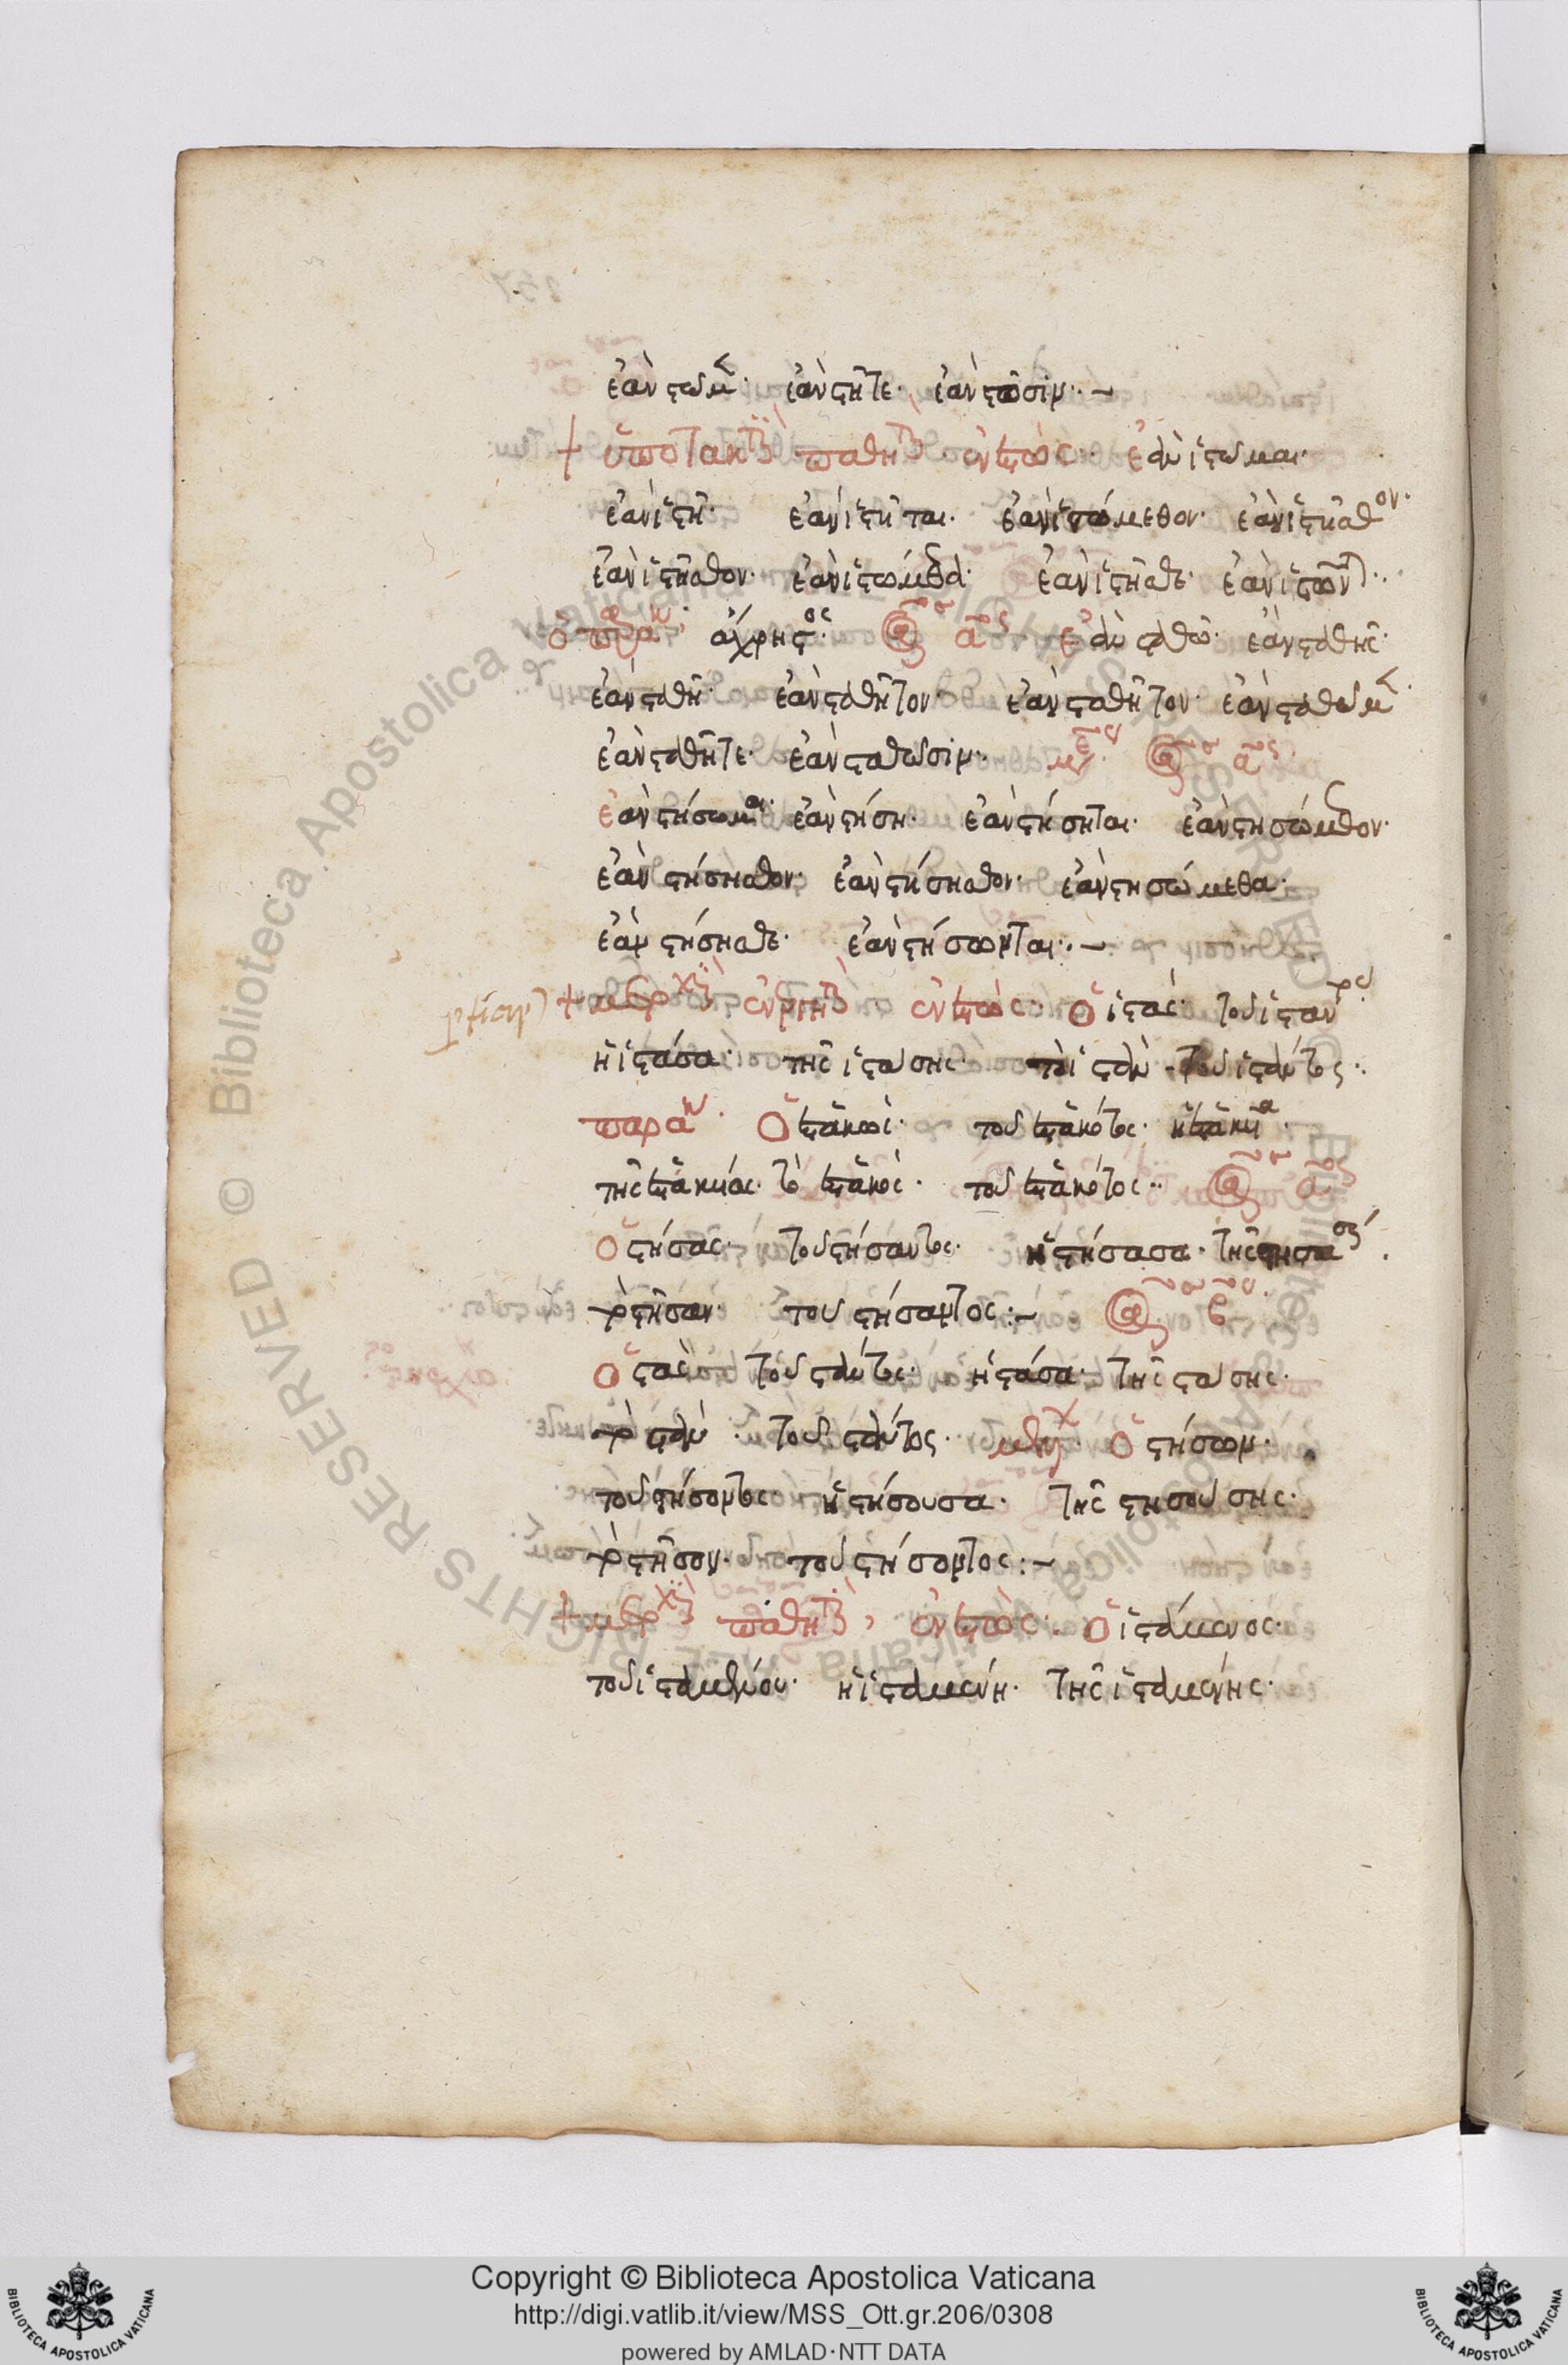 ἐὰν στῶμεν· ἐὰν στῆτε· ἐὰν στῶσιν·
+ ὑποτακτικὰ παθητικὰ ἐνεστῶτος· ἐὰν ἱστῶμαι·
ἐὰν ἱστῆ· ἐὰν ἱστῆται· ἐὰν ἱστώμεθον· ἐὰν ἱστῆσθον·
ἐὰν ἱστῆσθον· ἐὰν ἱστώμεθα· ἐὰν ἱστῆσθε· ἐὰν ἱστῶνται·
ὁ παρακ ἄχρηστος· ἐὰν σταθῶ· ἐὰν σταθῆς·
ἐὰν σταθῆ· ἐὰν σταθῆτον· ἐὰν σταθῆτον· ἐὰν σταθῶμεν·
ἐὰν σταθῆτε· ἐὰν σταθῶσιν·
ἐὰν στήσωμαι· ἐὰν στήση· ἐὰν στήσηται· ἐὰν στησώμεθον·
ἐὰν στήσησθον· ἐὰν στήσησθον· ἐὰν στησώμεθα·
ἐὰν στήσησθε· ἐὰν στήσωνται·
+ μετοχικὰ ἐνεργητικὰ ἐνεστῶτος· ὁ ἱστάς· τοῦ ἱστάντος
ἡ ἱστάσα· τῆς ἱστάσης· τὸ ἱστάν· τοῦ ἱστάντος·
παρακ· ὁ ἑστακώς· τοῦ ἑστακότος· ἡ ἑστακυῖα·
τῆς ἑστακυίας· τὸ ἑστακός· τοῦ ἑστακότος·
ὁ στήσας· τοῦ στήσαντος· ἡ στήσασα· τῆς στησάσης·
τὸ στῆσαν· τοῦ στήσαντος:
ὁ στάς· τοῦ στάντος· ἡ στάσα· τῆς στάσης·
τὸ στάν· τοῦ στάντος· μελλ· ὁ στήσων·
τοῦ στήσοντος· ἡ στήσουσα· τῆς στησούσης·
τὸ στῆσον· τοῦ στήσοντος:
+ μετοχικὰ παθητικὰ ἐνεστῶτος· ὁ ἱστάμενος·
τοῦ ἱσταμένου· ἡ ἱσταμένη· τῆς ἱσταμένης·
© Biblioteca Apostolica Vaticana
Copyright © Biblioteca Apostolica Vaticana
http://digi.vatlib.it/view/MSS_Ott.gr.206/0308
powered by AMLAD·NTT DATA
BIBLIOTECA APOSTOLICA VATICANA
BIBLIOTECA APOSTOLICA VATICANA